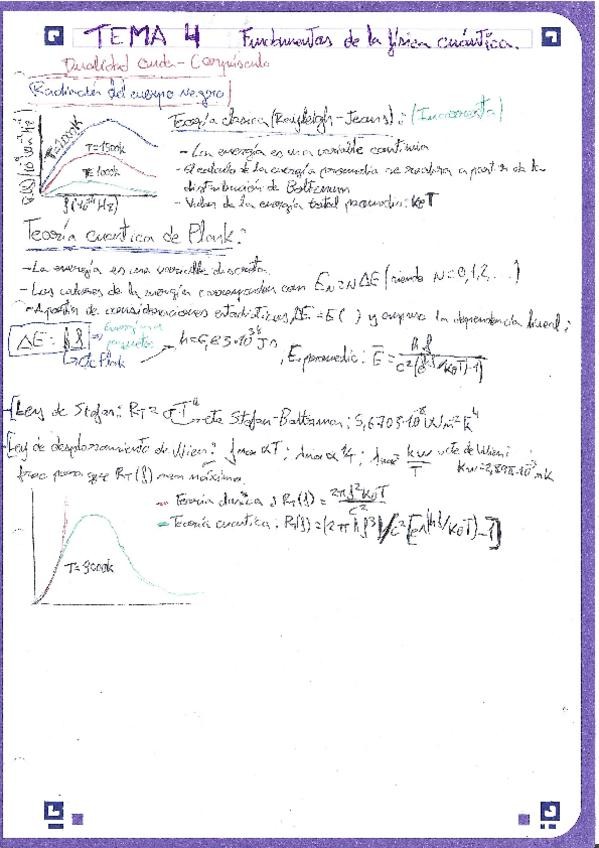 TEMA 4 Fundamentos de la física cuántica.
Dualidad Onda-Corpúsculo
Radiación del cuerpo negro
Teoría clásica (Rayleigh-Jeans): (Incorrecta)
T=2000K
T=1500K
T=1000K
- La energía es una variable continua
- El cálculo de la energía promedio se realiza a partir de la
distribución de Boltzmann
- Valor de la energía total promedio: KBT
Teoría cuántica de Plank:
- La energía es una variable discreta.
- Los valores de la energía corresponden con En=NΔE (siendo N=0,1,2,...)
- A partir de consideraciones estadísticas, ΔE=E( ) y empieza la dependencia lineal;
ΔE=hf ⇒ Energía en paquetes
cte Plank
h=6,63·10^-34 J·s, E promedio: E̅ = hf / c²(e^(hf/KBT)-1)
- Ley de Stefan: RT=σT⁴ cte Stefan-Boltzman; 5,6703·10^-8 W/m²K⁴
- Ley de desplazamiento de Wien: fmax α T; λmax α 1/T; λmax = kw/T cte de Wien:
kw=2,898·10^-3 mK
frec para que RT(f) sea máxima
- Teoría clásica: RT(f) = 2πf²KBT / c²
- Teoría cuántica: RT(f)=(2πhf³)/c²[e^(hf/KBT)-1]